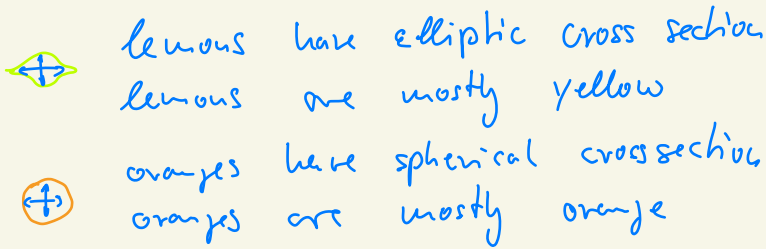 lemons have elliptic cross section
lemons are mostly yellow
oranges have spherical crosssection
oranges are mostly orange